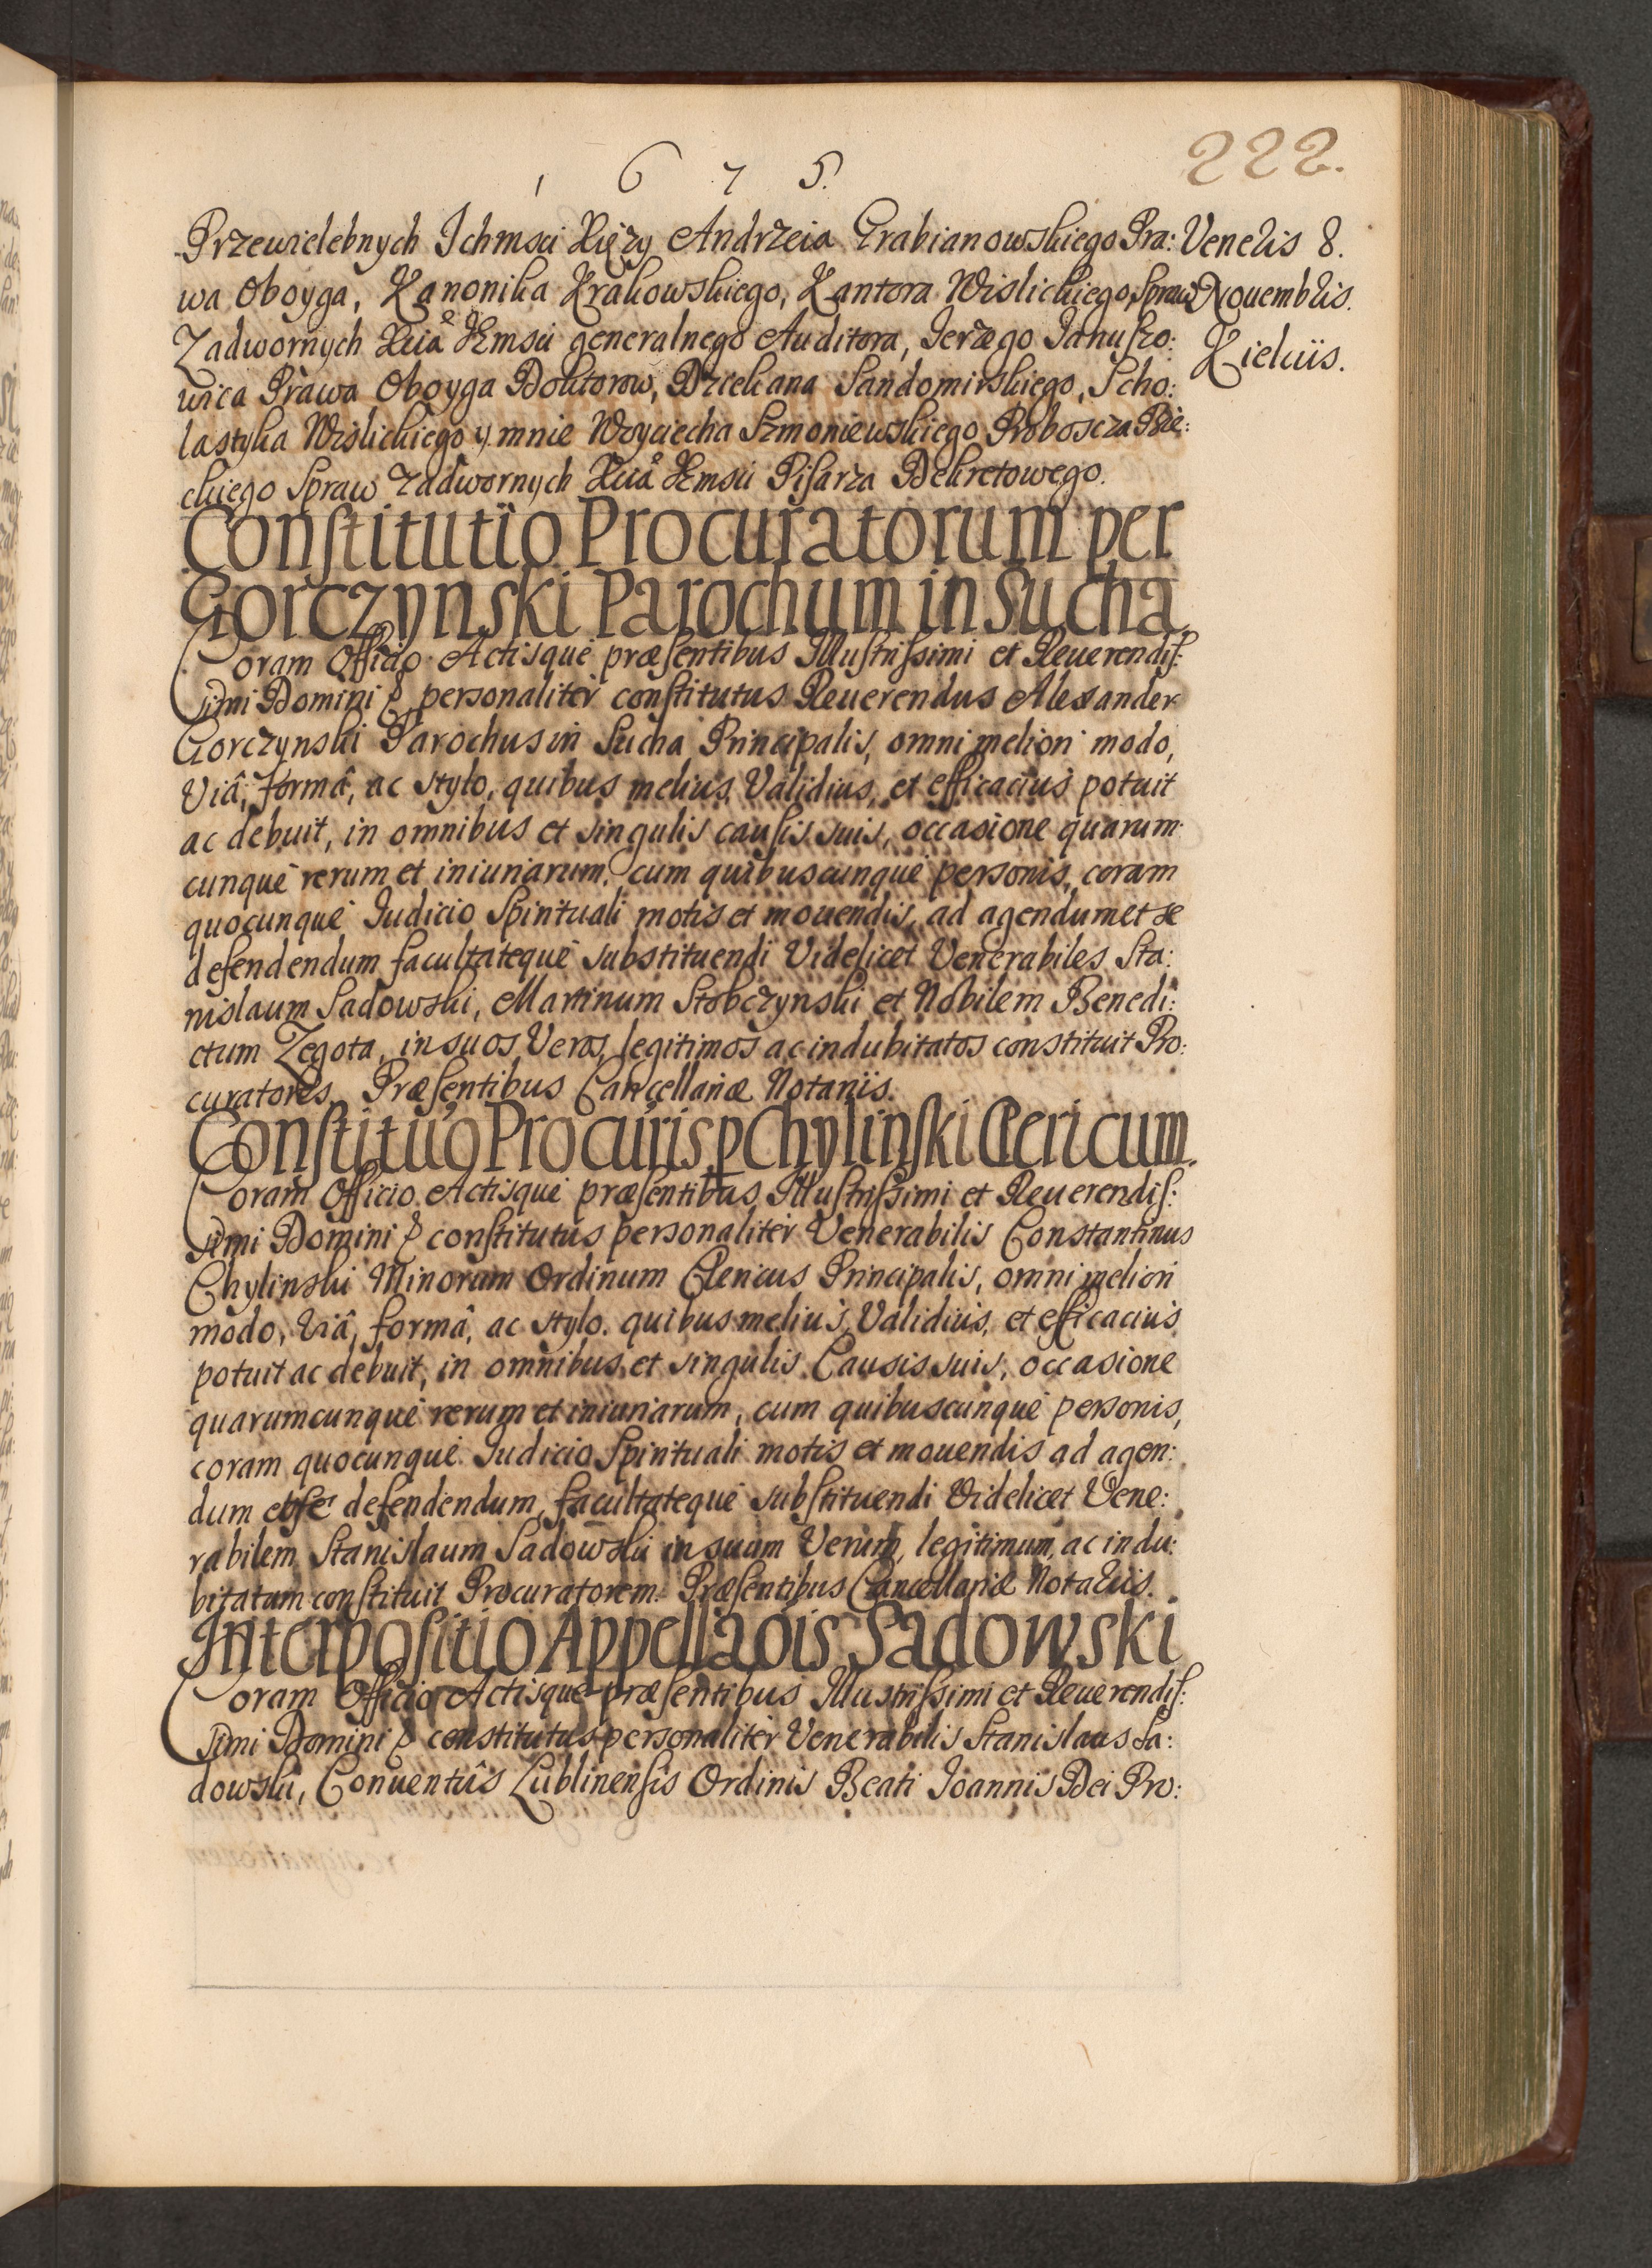 1675.
222.
Przewielebnych Ichmsci Xięzy Andrzeia Grabianowskiego Pra:
wa Oboyga, Kanonika Krakowskiego, Kantora Wislickiego, Spraw
Zadwornych Xcia Jemsci generalnego Auditora, Jerzego Januszo:
wica Prawa Oboyga Doktorow, Dziekana Sandomirskiego, Scho:
lastyka Wislickiego y mnie Woyciecha Szmoniewskiego Proboscza Bie:
ckiego Spraw Zadwornych Xcia Jemsci Pisarza Dekretowego.
Veneris 8.
Nouembris.
Kielciis.
Constitutio Procuratorum per
Gorczynski Parochum in Sucha
Coram Officio Actisque præsentibus Illustrissimi et Reuerendis:
simi Domini & personaliter constitutus Reuerendus Alexander
Gorczynski Parochus in Sucha Principalis, omni meliori modo,
Viâ, formâ, ac stylo, quibus melius, Validius, et efficacius potuit
ac debuit, in omnibus et singulis causis suis, occasione quarum
cunque rerum et iniuriarum, cum quibuscunque personis, coram
quocunque Iudicio Spirituali motis et mouendis, ad agendum et se
defendendum facultateque substituendi Videlicet Venerabiles Sta:
nislaum Sadowski, Martinum Stobczynski et Nobilem Benedi:
ctum Zegota, in suos Veros, legitimos ac indubitatos constituit Pro:
curatores. Præsentibus Cancellariæ Notariis.
Constituo Procuris p Chylinski Clericum.
Coram Officio Actisque præsentibus Illustrissimi et Reuerendis:
simi Domini & constitutus personaliter Venerabilis Constantinus
Chylinski Minorum Ordinum Clericus Principalis, omni meliori
modo, Viâ, formâ, ac stylo. quibus melius, Validius, et efficacius
potuit ac debuit, in omnibus et singulis Causis suis, occasione
quarumcunque rerum et iniuriarum, cum quibuscunque personis,
coram quocunque Iudicio Spirituali motis et mouendis ad agen:
dum et se defendendum, facultateque substituendi Videlicet Vene:
rabilem Stanislaum Sadowski in suum Verum, legitimum, ac indu:
bitatum constituit Procuratorem. Præsentibus Cancellariæ Notariis.
Interpositio Appellaois Sadowski
Coram Officio Actisque præsentibus Illustrissimi et Reuerendis:
simi Domini & constitutus personaliter Venerabilis Stanislaus Sa:
dowski, Conuentûs Lublinensis Ordinis Beati Joannis Dei Pro: